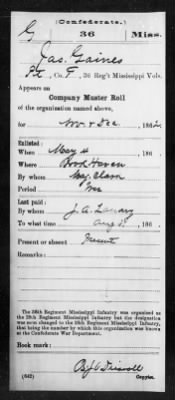 (Confederate.)
G 36 Miss.
Jas. Gaines
Pt, Co. F, 36 Reg't Mississippi Vols.
Appears on
Company Muster Roll
of the organization named above,
for Nov & Dec, 1862.
Enlisted:
When May 4, 186
Where Brook Haven
By whom Maj. Clark
Period
Last paid:
By whom J. A.
To what time Aug 31, 186
Present or absent Present
Remarks:
The 36th Regiment Mississippi Infantry was organized as
the 38th Regiment Mississippi Infantry but the designation
was soon changed to the 36th Regiment Mississippi Infantry,
that being the number by which this organization was known
at the Confederate War Department.
Book mark:
(642)
Driscoll
Copyist.